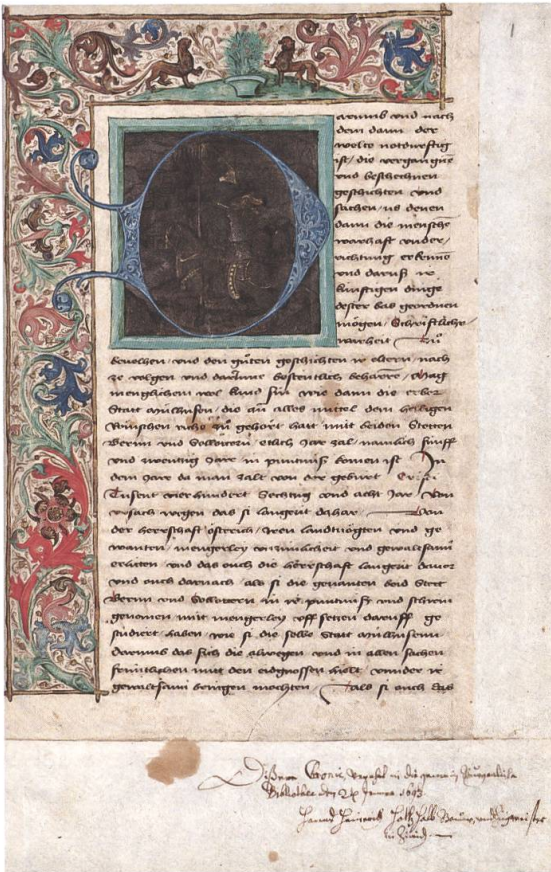 1
arumb vnd nach
dem dann der
welte notdurftig
ist / die vergangne
vnd beschechnen
geschichten vnd
sachen / us denen
dann die mensche
warhaft vnder /
richtung erkenne
vnd daruß ir
kunftigen dinge
dester bas geordnen
mögen / Schriftliche /
warheit zů
beuolhen / vnd den gůten geschichten ir eltern / nach
ze volgen vnd darinne
menglichem wol kund sin wie dann die erber
Statt mulhusen / die an alles mittel dem heiligen
Römschen riche zů gehört hatt mit beiden Stetten
Bernn vnd Sollotern / etlich Jare zal / namlich fünff
vnd zwentzig Jare in puntnuß komen ist In
dem Jare da man zalt von der geburt Cristi
Tusent vierhundert Sechtzig vnd acht Jare Von
vrsach wegen das si langezit dahar / von
der herrschaft österich / Iren landtuögten vnd ge
wanten / mengerley vnzimlicheit vnd gewaltsami
erlitten vnd das ouch die herrschaft langezit dauor
vnd ouch darnach / als si die genanten beid Stett
Bernn vnd Sollotern in ir puntnuß vnd schirm
genomen mit mengerley vff setzen daruff ge
studiert haben / wie si die selbe Statt mulhusenn
darumb das sich die alwegen vnd in allen sachen
früntlichen mit den eidgnossen hielt / vnnder ir
gewaltsami bringen möchten / als si ouch das
Dißere Cronic, in die gemein Burgerliche
Bibliothec den 24 Jenner 1693.
Hanns Heinrich
in Zürich